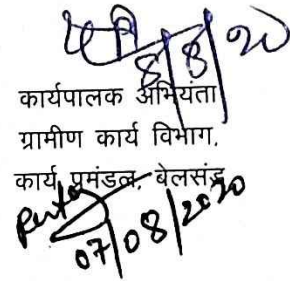 8/8/20
कार्यपालक अभियंता
ग्रामीण कार्य विभाग,
कार्य प्रमंडल, बेलसंड
07/08/2020